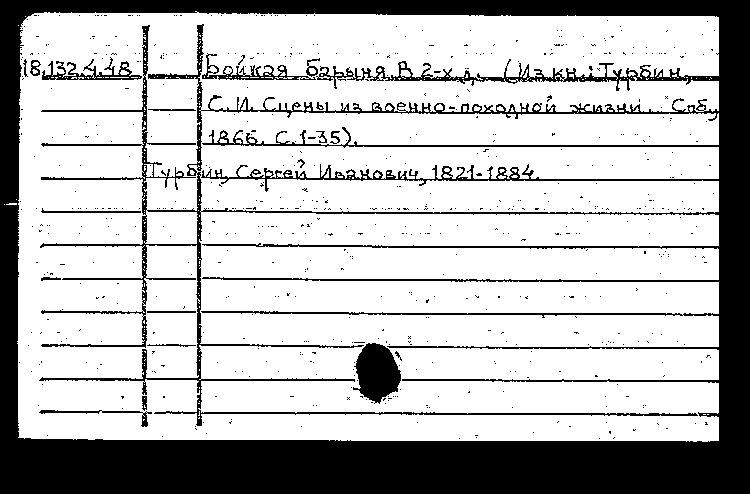 18.132.4.48 Бойкая барыня. В 2-х д. (Из кн.: Турбин,
С. И. Сцены из военно-походной жизни. Спб.,
1866. С. 1-35).
Турбин, Сергей Иванович, 1821-1884.